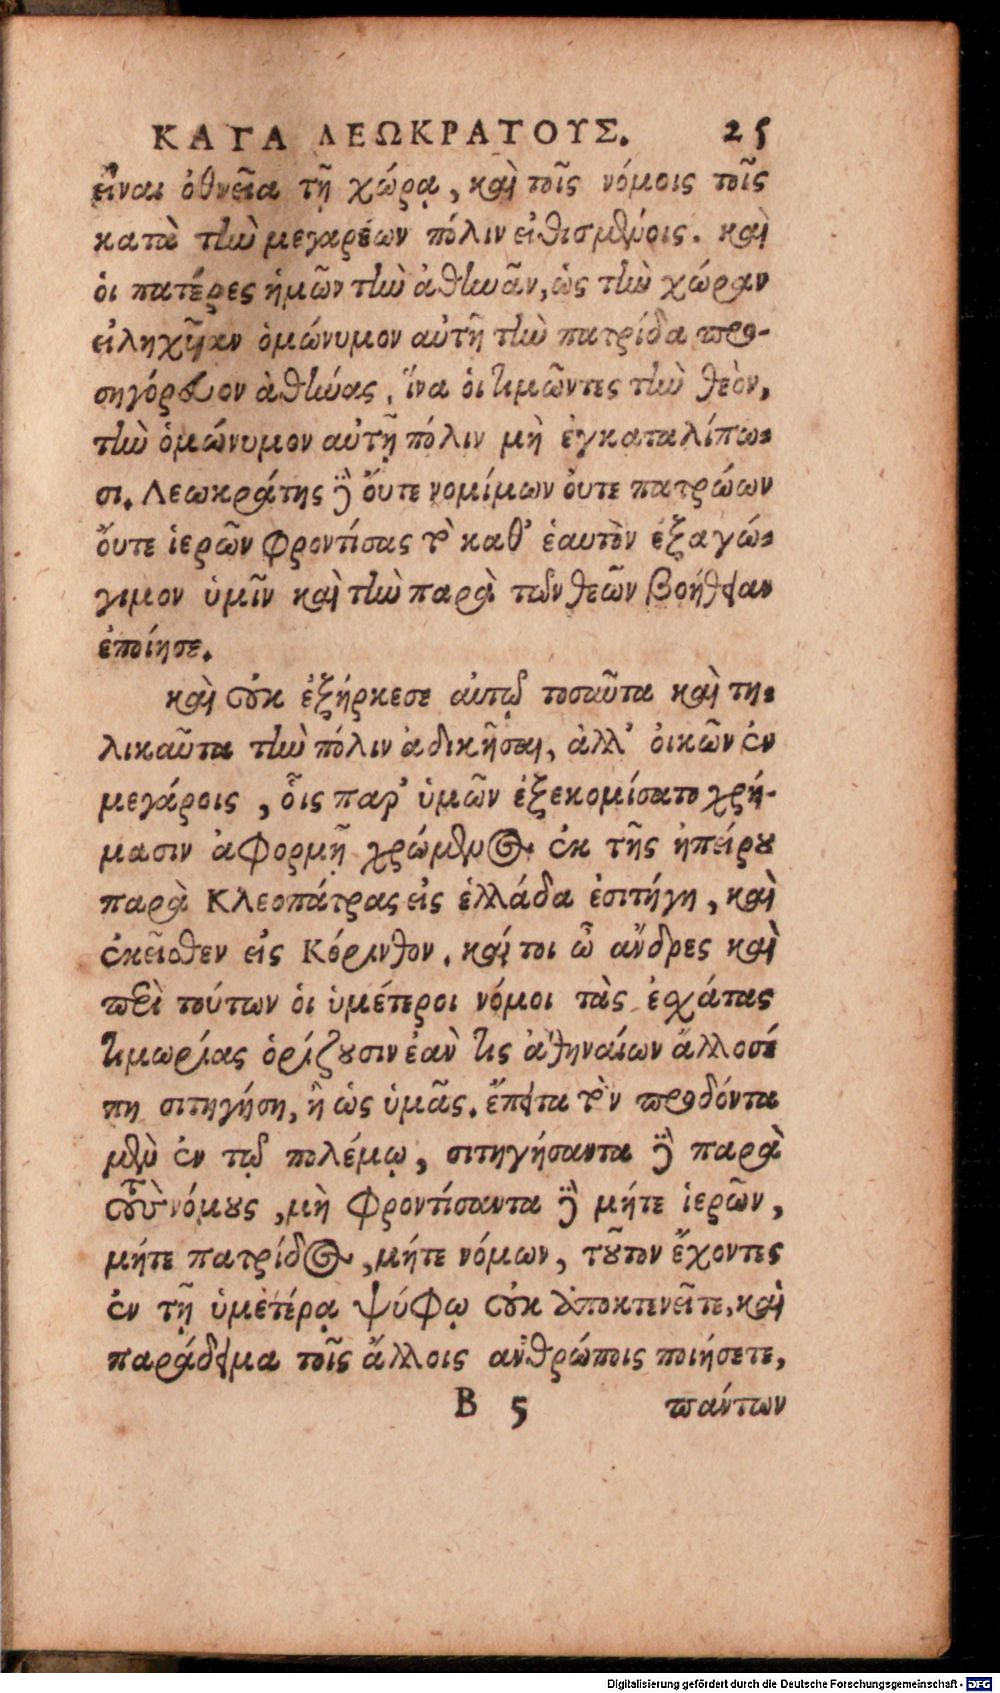 ΚΑΤΑ ΛΕΩΚΡΑΤΟΥΣ. 25
εἶναι ὀθνεῖα τῇ χώρᾳ, καὶ τοῖς νόμοις τοῖς
κατὰ τὴν μεγαρέων πόλιν εἰθισμένοις. καὶ
οἱ πατέρες ἡμῶν τὴν ἀθηνᾶν, ὡς τὴν χώραν
εἰληχῆαν ὁμώνυμον αὐτῇ τὴν πατρίδα προ-
σηγόρευον ἀθήνας, ἵνα οἱ τιμῶντες τὴν θεὸν,
τὴν ὁμώνυμον αὐτῇ πόλιν μὴ ἐγκαταλίπω-
σι. Λεωκράτης δὲ ὄυτε νομίμων ὀυτε πατρώων
ὄυτε ἱερῶν φροντίσας τὸ καθ' ἑαυτὸν ἐξαγώ-
γιμον ὑμῖν καὶ τὴν παρὰ τῶν θεῶν βοήθειαν
ἐποίησε.
καὶ οὐκ ἐξήρκεσε αὐτῷ τοσαῦτα καὶ τη-
λικαῦτα τὴν πόλιν ἀδικῆσαι, ἀλλ' οἰκῶν ἐν
μεγάροις, οἷς παρ' ὑμῶν ἐξεκομίσατο χρή-
μασιν ἀφορμῇ χρώμενος ἐκ τῆς ἠπείρου
παρὰ Κλεοπάτρας εἰς ἑλλάδα ἐσιτήγη, καὶ
ἐκεῖθεν εἰς Κόρινθον. καί τοι ὦ ἄνδρες καὶ
περὶ τούτων οἱ ὑμέτεροι νόμοι τὰς ἐχάτας
τιμωρίας ὁρίζουσιν ἐὰν τις ἀθηναίων ἄλλοσέ
πη σιτηγήση, ἢ ὡς ὑμᾶς. ἔπειτα τὸν προδόντα
μὲν ἐν τῷ πολέμῳ, σιτηγήσαντα δὲ παρὰ
τοὺς νόμους, μὴ φροντίσαντα δὲ μήτε ἱερῶν,
μήτε πατρίδος, μήτε νόμων, τοῦτον ἔχοντες
ἐν τῇ ὑμετέρᾳ ψύφῳ οὐκ ἀποκτενεῖτε, καὶ
παράδειμα τοῖς ἄλλοις ανθρώποις ποιήσετε,
Β 5 πάντων
Digitalisierung gefördert durch die Deutsche Forschungsgemeinschaft - DFG